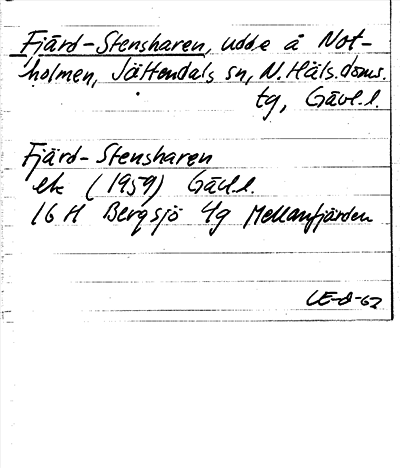 Fjärd-Stensharen, udde å Not-
holmen, Jättendals sn, N. Häls. doms.
tg, Gävl. l.
Fjärd-Stensharen
ek (1959) Gävl. l.
16 H Bergsjö 4g Mellanfjärden
LE-d-62